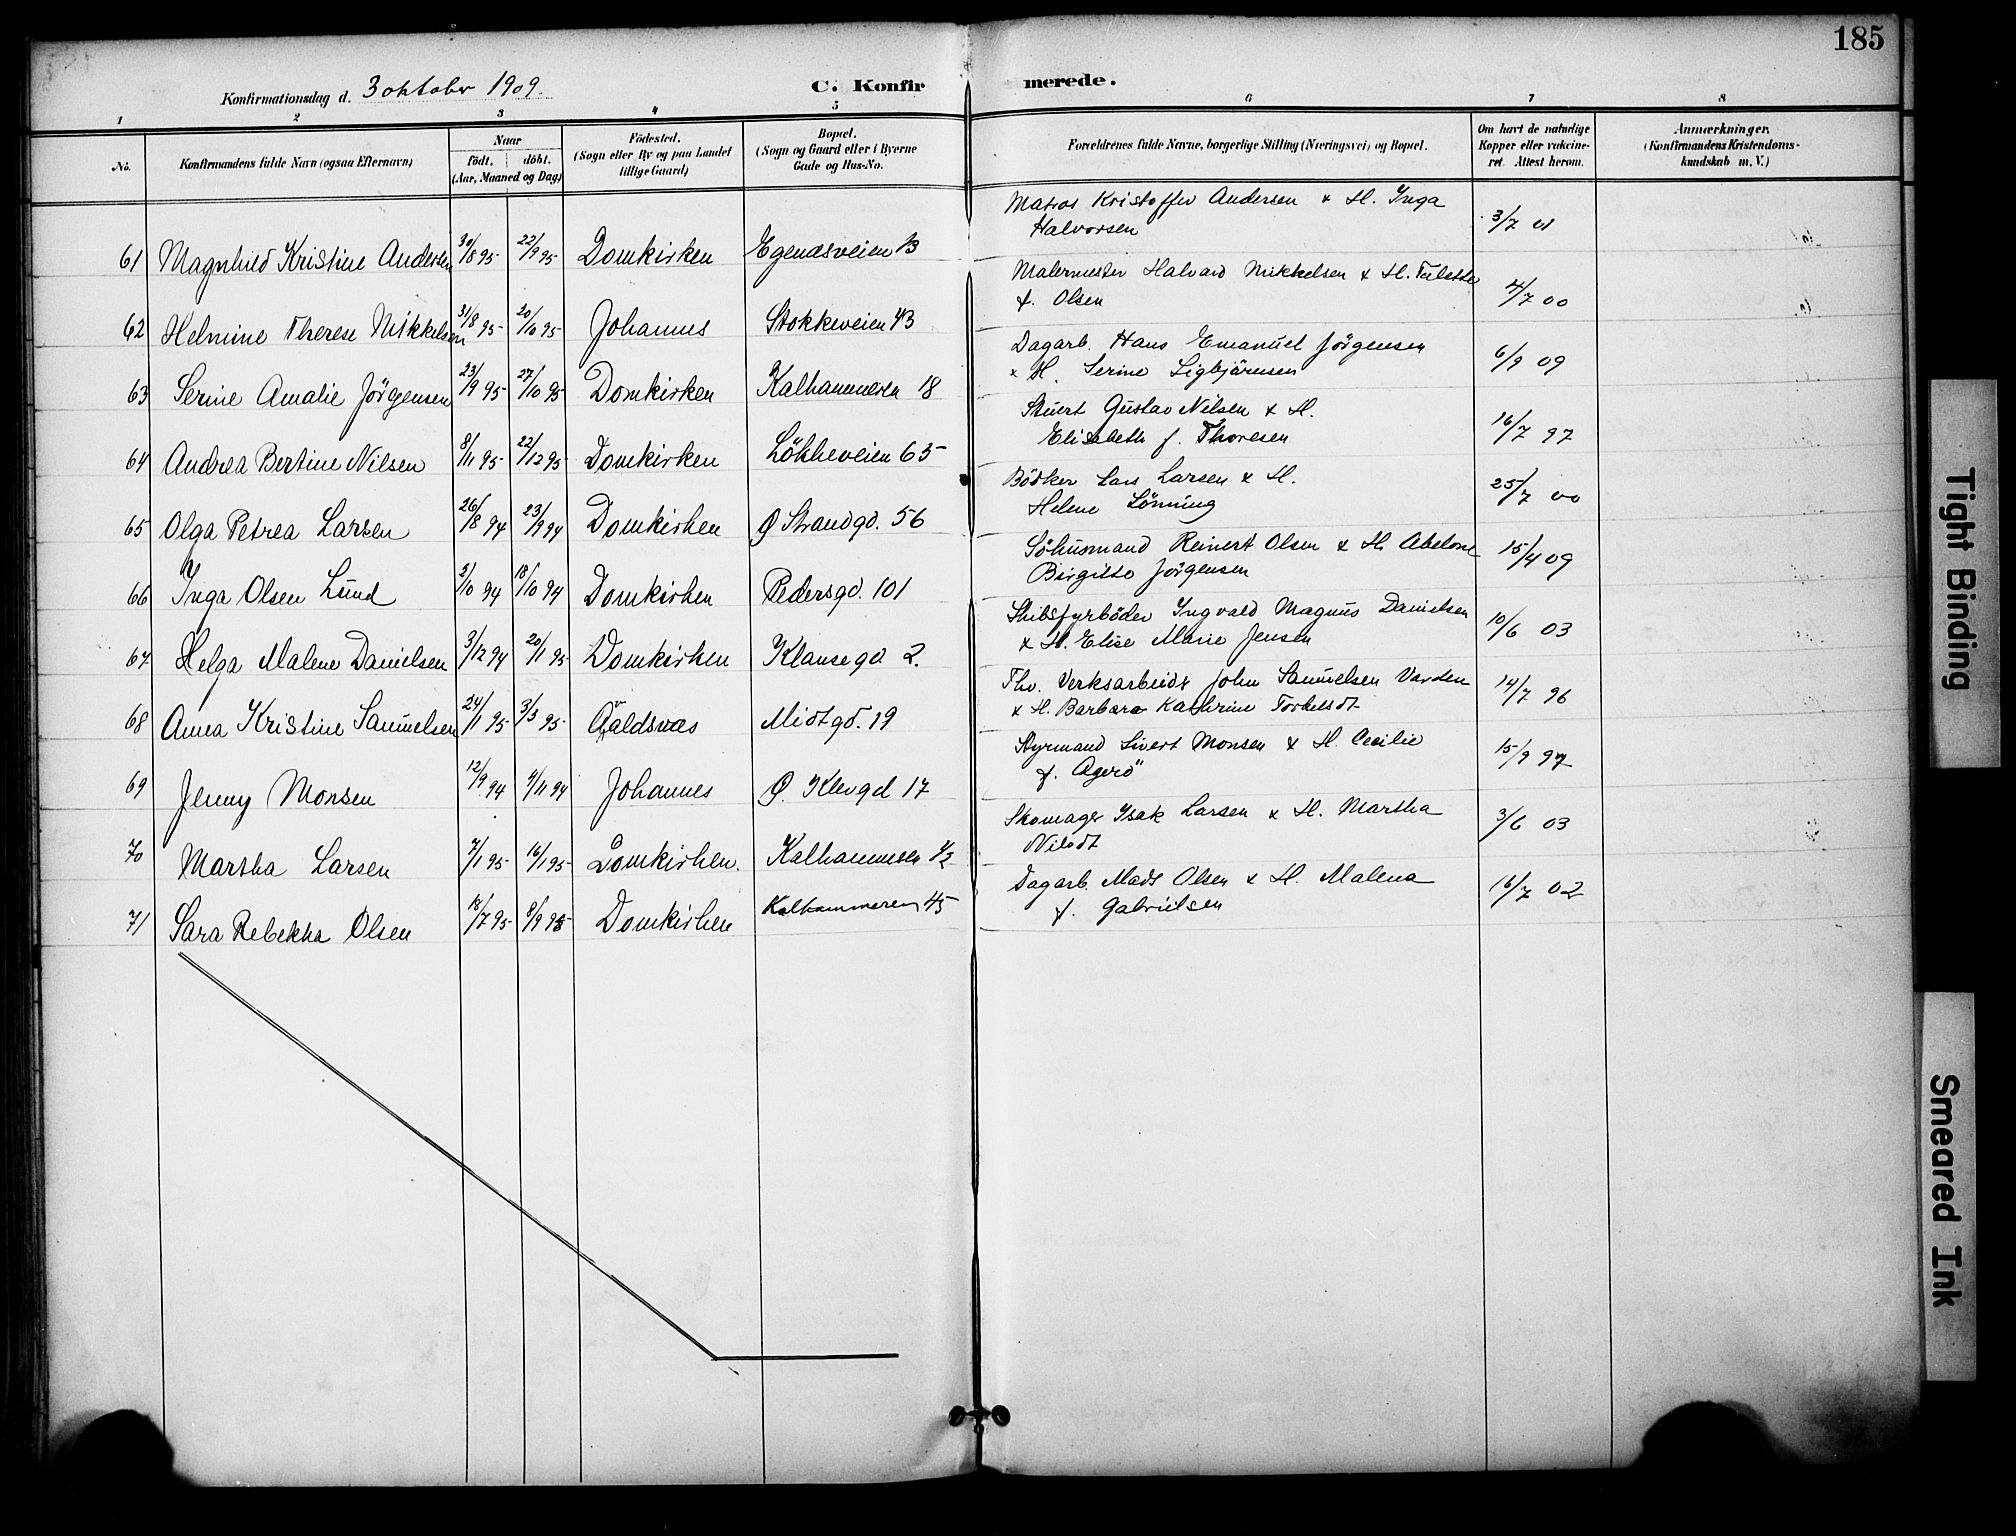 185
Konfirmationsdag d. 3 oktober 1909.
C. Konfir merede.
1 2 3 4 5 6 7 8
No.
Konfirmandens fulde Navn (ogsaa Efternavn)
Naar
født. døbt.
(Aar, Maaned og Dag)
Födested.
(Sogn eller By og paa Landet
tillige Gaard)
Bopæl.
(Sogn og Gaard eller i Byerne
Gade og Hus-No.
Forældrenes fulde Navne, borgerlige Stilling (Næringsvei) og Bopæl.
Om havt de naturlige
Kopper eller vakcine-
ret. Attest herom.
Anmærkninger.
(Konfirmandens Kristendoms-
kundskab m. V.)
61 Magnhild Kristine Andersen 30/8 95 22/9 95 Domkirken Egenæsveien 13 Matros Kristoffer Andersen & H. Inga
Halvorsen 3/7 01
62 Helmine Therese Mikkelsen 31/8 95 20/10 95 Johannes Stokkeveien 43 Malermester Halvard Mikkelsen & H.
f. Olsen /7 00
63 Serine Amalie Jörgensen 23/9 95 27/10 95 Domkirken Kalhammeren 18 Dagarb. Hans Emanuel Jörgensen
& H. Serine Sigbjörnsen 6/9 09
64 Andrea Bertine Nilsen 8/11 95 22/12 95 Domkirken Lökkeveien 65 Stuert Gustav Nilsen & H.
Elisabeth f. Thoresen 16/7 97
65 Olga Petrea Larsen 26/8 94 23/9 94 Domkirken Ø Strandgd. 56 Bödker Lars Larsen & H.
Helene Lönning 25/7 00
66 Inga Olsen Lund 2/10 94 18/10 94 Domkirken Pedersgd. 101 Söhusmand Reinert Olsen & H. Abelone
Birgitte Jörgensen 15/4 09
67 Helga Malene Danielsen 3/12 94 20/1 95 Domkirken Klausegd. 2. Skibsfyrböder Ingvald Magnus Danielsen
& H. Elise Marie Jensen 10/6 03
68 Anna Kristine Samuelsen 24/1 95 3/3 95 Midtgd. 19 Thv. Verksarbeider John Samuelsen Varden
& H. Barbara Kathrine Torkelsdt 14/7 96
69 Jenny Monsen 12/9 94 4/11 94 Johannes Ø. Klevgd 17 Styrmand Sivert Monsen & H. Cecilie
f. Agerö 15/9 97
70 Martha Larsen 7/1 95 16/1 95 Domkirken. Kalhammeren Skomager Isak Larsen & H. Martha
Nilsdt 3/6 03
71 Sara Rebekka Olsen 18/7 95 8/9 95 Domkirken Kalhammeren 45 Dagarb. Mads Olsen & H. Malena
f. Gabrielsen 16/7 02
Tight Binding
Smeared Ink